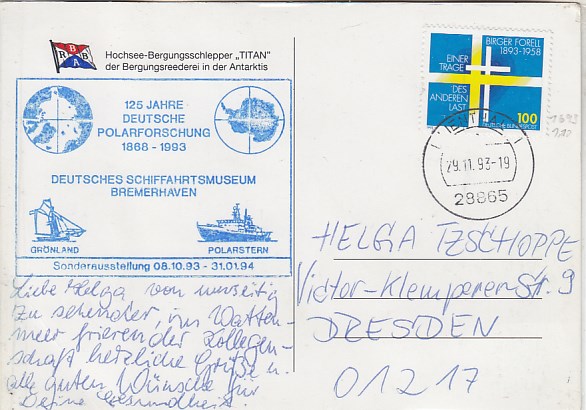 B
R B
A
Hochsee-Bergungsschlepper „TITAN"
der Bergungsreederei in der Antarktis
125 JAHRE
DEUTSCHE
POLARFORSCHUNG
1868 - 1993
DEUTSCHES SCHIFFAHRTSMUSEUM
BREMERHAVEN
GRÖNLAND
POLARSTERN
Sonderausstellung 08.10.93 - 31.01.94
Liebe Helga von
zu sehender, im Watten-
meer frierender Kollegen-
schaft herzliche Grüße u.
alle guten Wünsche für
Deine Gesundheit.
BIRGER FORELL
1893-1958
EINER
TRAGE
DES
ANDEREN
LAST
100
DEUTSCHE BUNDESPOST
29.11.93-19
28865
HELGA TZSCHOPPE
Victor-Klemperer-Str. 9
DRESDEN
01217